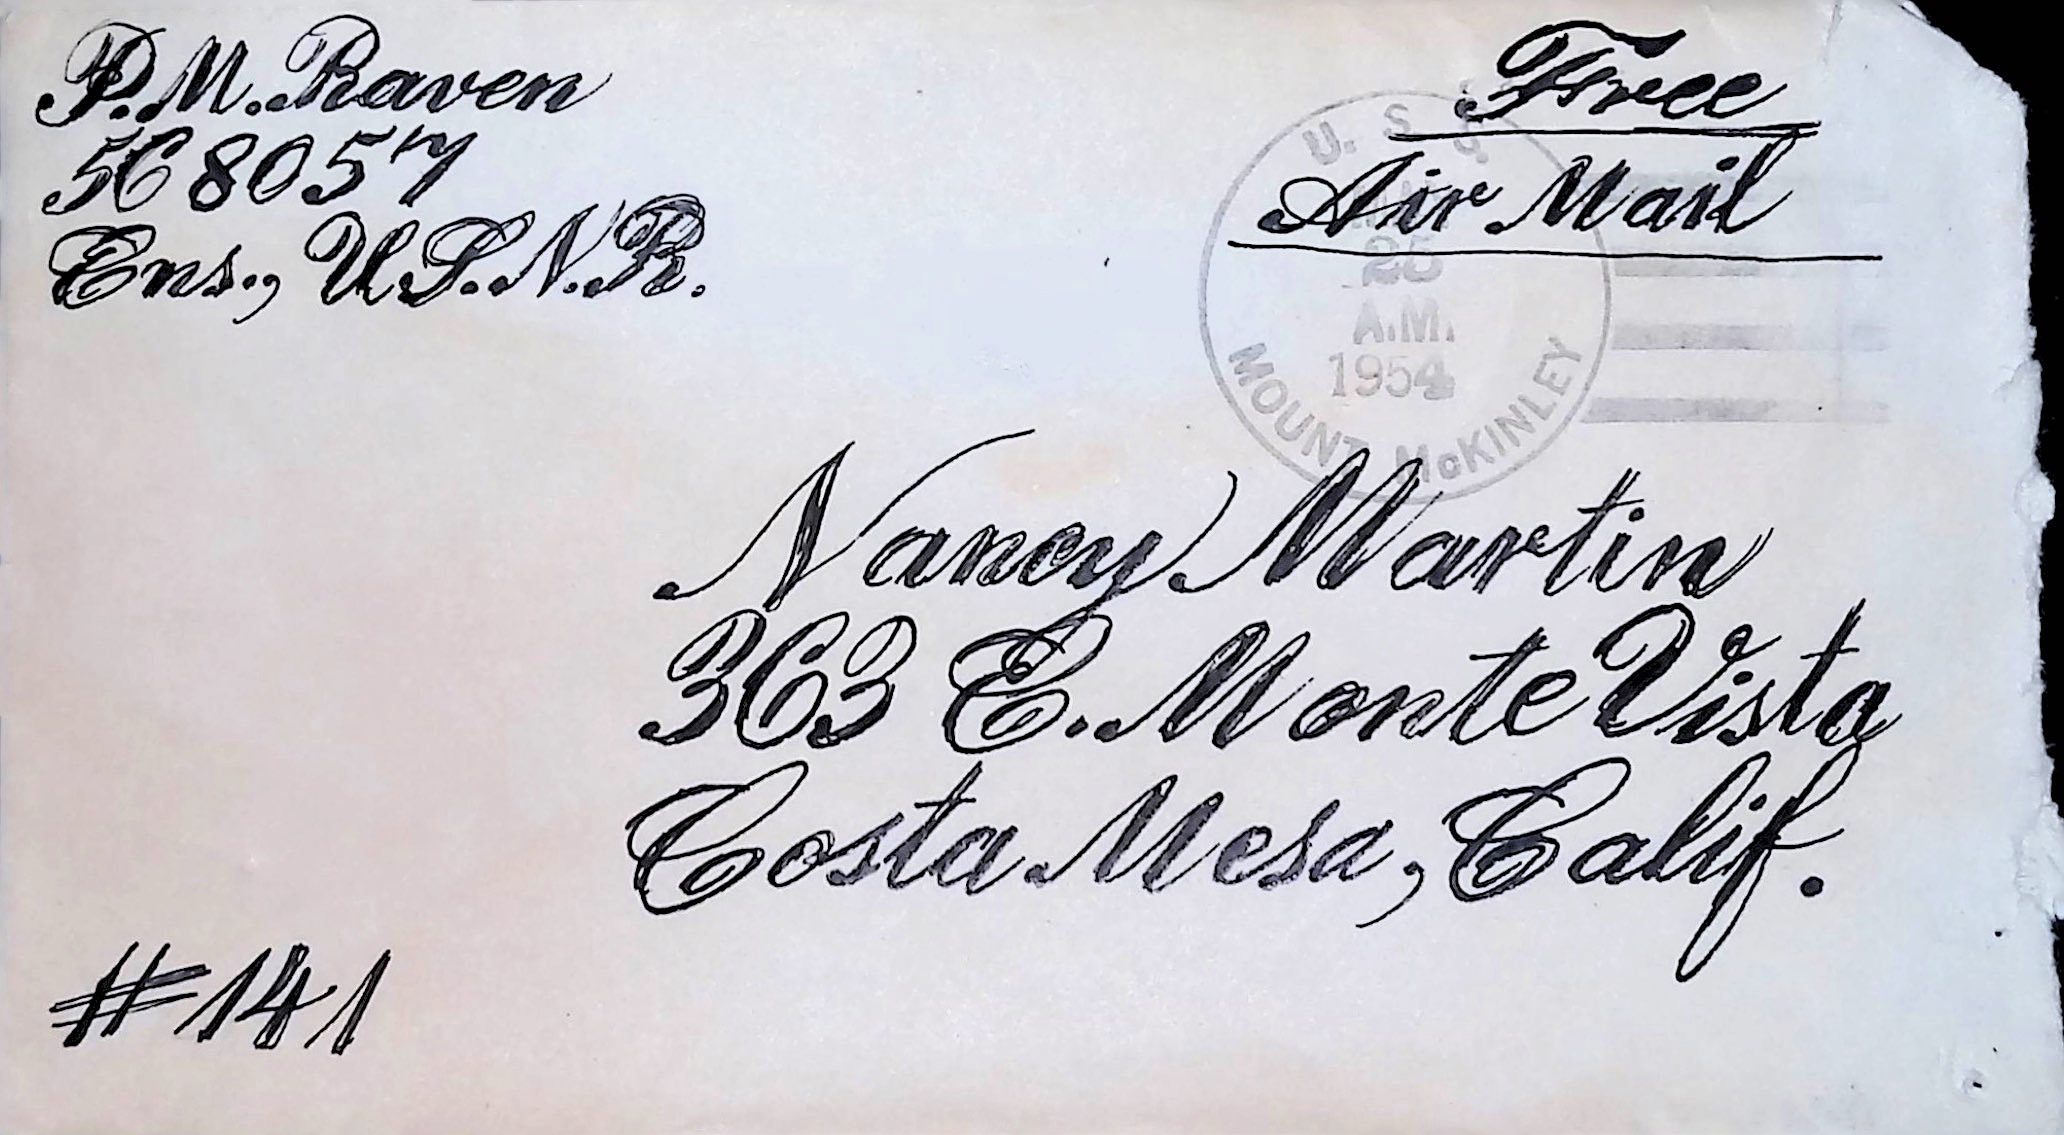 P. M. Raven
568057
Ens., U.S.N.R.
Free
Air Mail
U. S. S.
A.M.
1954
MOUNT McKINLEY
Nancy Martin
363 E. Monte Vista
Costa Mesa, Calif.
#141